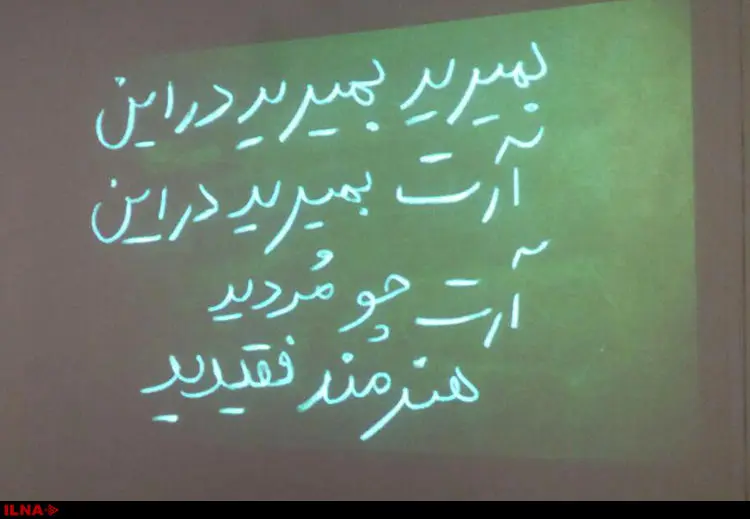 بمیرید بمیرید در این
آرت بمیرید در این
آرت چو مُردید
هنرمُند فقیدید
ILNA